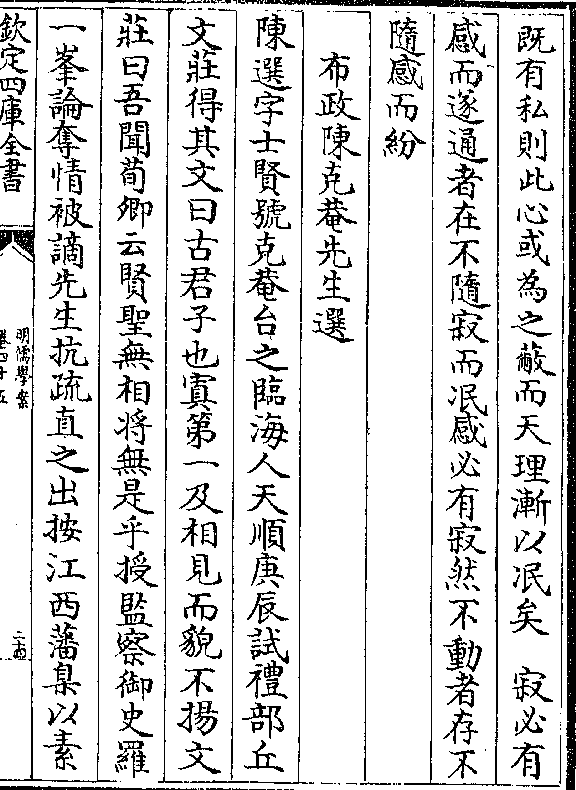 既有私則此心或為之蔽而天理漸以冺矣　寂必有
感而遂通者在不隨寂而冺感必有寂然不動者存不
隨感而紛
布政陳克菴先生選
陳選字士賢號克菴台之臨海人天順庚辰試禮部丘
文莊得其文曰古君子也寘第一及相見而貌不揚文
莊曰吾聞荀卿云賢聖無相将無是乎授監察御史羅
一峯論奪情被謫先生抗疏直之出按江西藩臬以素
欽定四庫全書
明儒學案
卷四十五